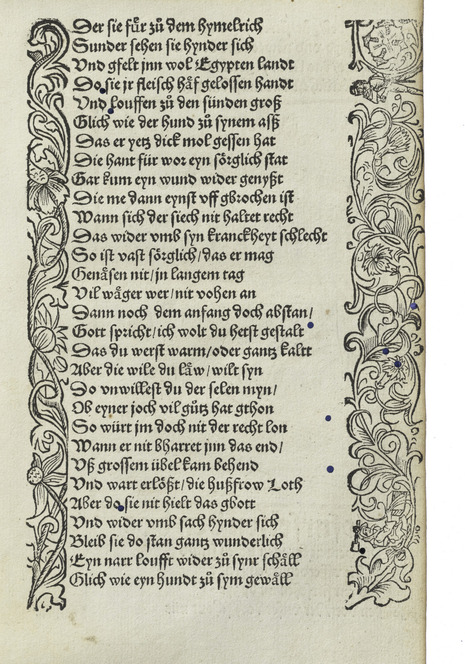 Der sie fuͤr zuͦ dem hymelrich
Sunder sehen sie hynder sich
Vnd gfelt jnn wol Egypten landt
Do sie jr fleisch haͤf gelossen handt
Vnd louffen zuͦ den sünden groß
Glich wie der hund zuͦ synem aſß
Das er yetz dick mol gessen hat
Die hant für wor eyn soͤrglich stat
Gar kum eyn wund wider genyßt
Die me dann eynst vff gbrochen ist
Wann sich der siech nit haltet recht
Das wider vmb syn kranckheyt schlecht
So ist vast soͤrglich/das er mag
Genaͤsen nit/jn langem tag
Vil waͤger wer/nit vohen an
Dann noch dem anfang doch abstan/
Gott spricht/ich wolt du hetst gestalt
Das du werst warm/oder gantz kaltt
Aber die wile du laͤw/wilt syn
So vnwillest du der selen myn/
Ob eyner joch vil guͦtz hat gthon
So würt jm doch nit der recht lon
Wann er nit bharret jnn das end/
Vß grossem übel kam behend
Vnd wart erloͤßt/die hußfrow Loth
Aber do sie nit hielt das gbott
Vnd wider vmb sach hynder sich
Bleib sie do stan gantz wunderlich
Eyn narr loufft wider zuͦ synr schaͤll
Glich wie eyn hundt zuͦ sym gewaͤll